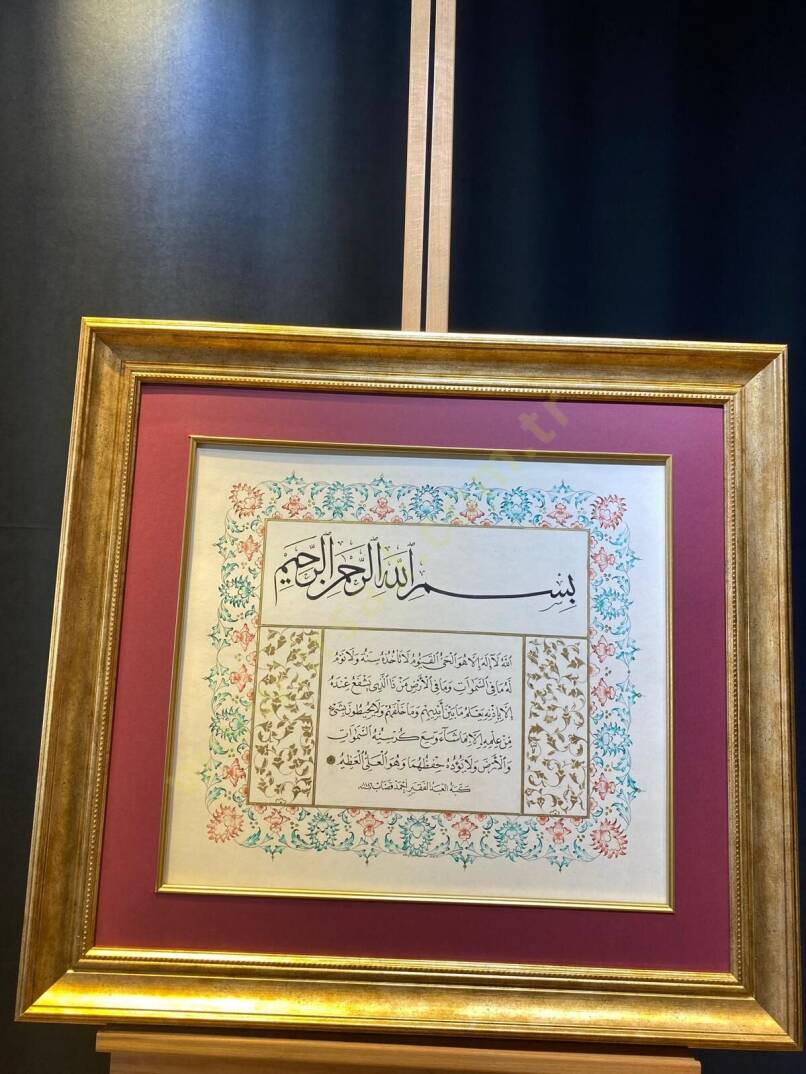 بِسْمِ اللّٰهِ الرَّحْمٰنِ الرَّحِيْمِ
اَللّٰهُ لَٓا اِلٰهَ اِلَّا هُوَ الْحَيُّ الْقَيُّومُ لَا تَأْخُذُهُ سِنَةٌ وَلَا نَوْمٌ
لَهُ مَا فِي السَّمٰوَاتِ وَمَا فِي الْاَرْضِ مَنْ ذَا الَّذِي يَشْفَعُ عِنْدَهُ
اِلَّا بِاِذْنِهِ يَعْلَمُ مَا بَيْنَ اَيْدِيهِمْ وَمَا خَلْفَهُمْ وَلَا يُحِيطُونَ بِشَيْءٍ
مِنْ عِلْمِهِ اِلَّا بِمَا شَٓاءَ وَسِعَ كُرْسِيُّهُ السَّمٰوَاتِ
وَالْاَرْضَ وَلَا يَؤُدُهُ حِفْظُهُمَا وَهُوَ الْعَلِيُّ الْعَظِيمُ
كتبه العبد الفقير احمد